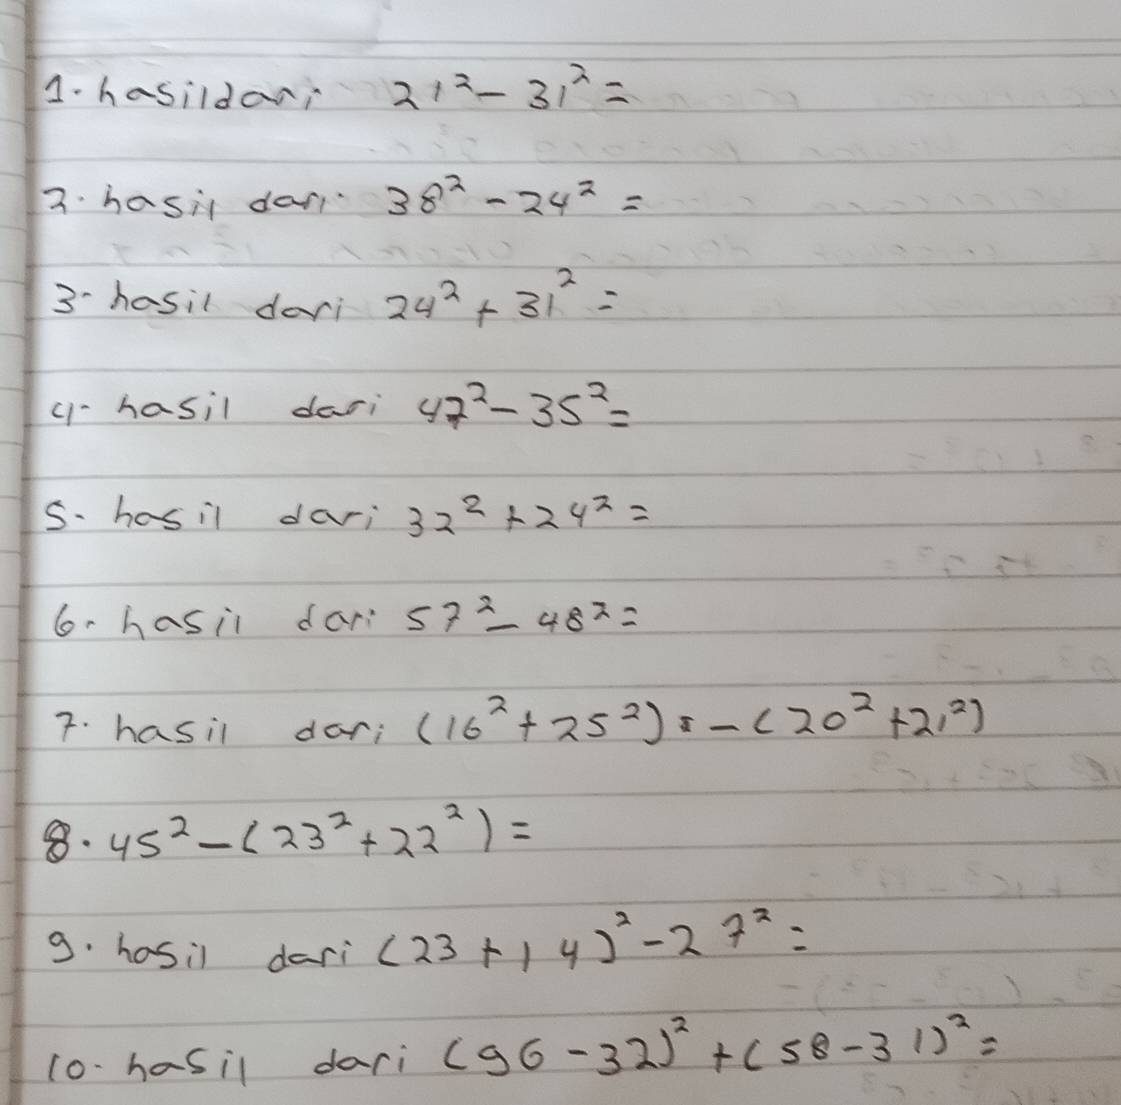 1. hasil dari 21² - 31² =
2. hasil dari 38² - 24² =
3. hasil dari 24² + 31² =
4. hasil dari 47² - 35² =
5. hasil dari 32² + 24² =
6. hasil dari 57² - 48² =
7. hasil dari (16² + 25²) - (20² + 21²)
8. 45² - (23² + 22²) =
9. hasil dari (23 + 14)² - 27² =
10. hasil dari (96 - 32)² + (58 - 31)² =